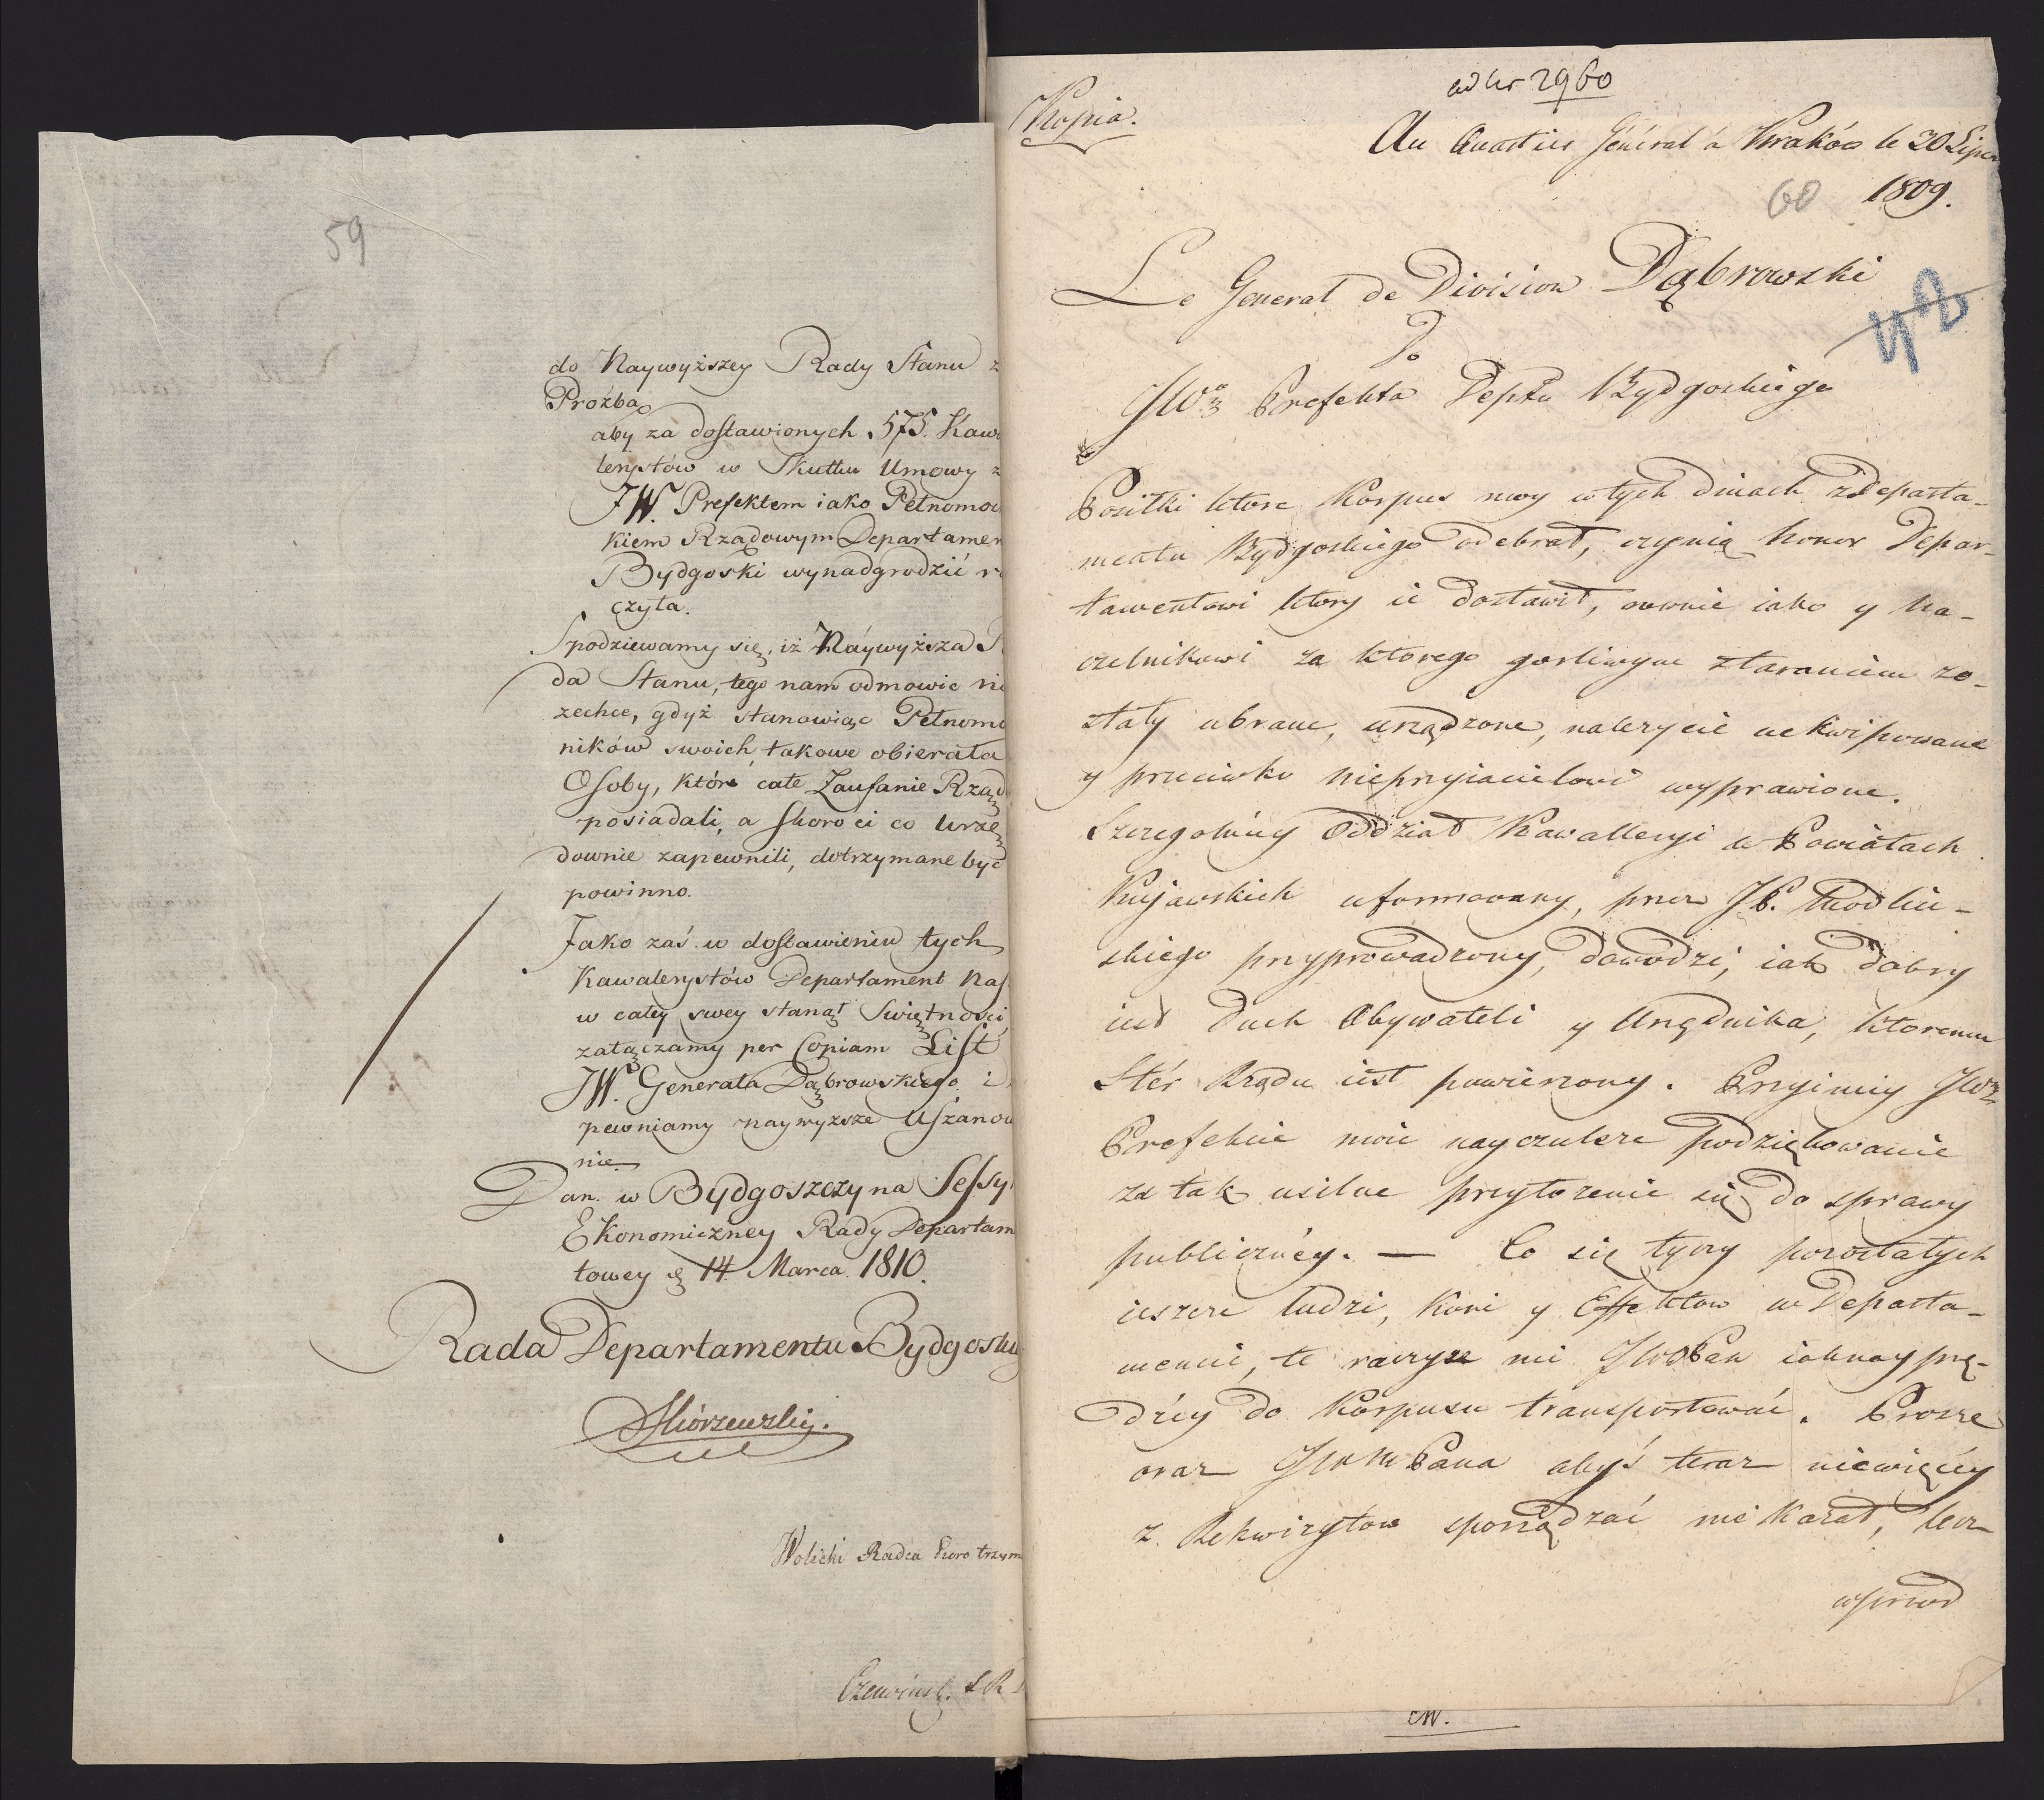 59
do Naywyższey Rady Stanu z
Proźbą
aby za dostawionych 575. Kawa
lerystów w Skutku Umowy z
JW. Prefektem iako Pełnomoc
kiem Rządowym Departamen
Bydgoski wynadgrodzić ra
czyła.
Spodziewamy się, iż Náywyższa R
da Stanu, tego nam odmowic nie
zechce, gdyż stanowiąc Pełnomo
ników swoich, takowe obierała
Osoby, które całe Zaufanie Rządu
posiadali, a skoro ci co Urzę
downie zapewnili, dotrzymane być
powinno.
Jako zaś w dostawieniu tych
Kawalerystów Departament Nas
w całey swey stanął Swiętności
załączamy per Copiam List
JW. Generała Dąbrowskiego, i
pewniamy naywyższe Uszanowa
nie.
Dan. w Bydgoszczy na Sessyi
Ekonomiczney Rady Departam
towey d. 14 Marca 1810.
Rada Departamentu Bydgosk
Skórzewski.
Wolicki Radca Pioro trzym
Czerwinsk. S R
Kopia.
ad Nr 2960
Au Quartier Général á Kraków le 20 Lipca
60 1809.
Le General de Division Dąbrowski
42
Do
JWo Prefekta Deptu Bydgoskiego
Posiłki ktore Korpus moy w tych dniach z Departa-
mentu Bydgoskiego odebrał, czynią honor Depar-
tamentowi ktory ie dostawił, rownie iako y Na-
czelnikowi za ktorego gorliwym staraniem zo-
stały ubrane, urządzone, należycie uekwipowane
y przeciwko nieprzyiacielowi wyprawione.
Szczegolniey Oddział Kawalleryi w Powiatach
Kujawskich uformowany, przez JP. Modliń-
skiego przyprowadzony, dowodzi, iak dobry
iest Duch Obywateli y Urzędnika, ktoremu
Stér Rządu iest powierzony. Przyimiy JWP
Prefekcie moie nayczulsze podziękowanie
za tak usilne przyłożenie się do sprawy
publicznéy. — Co się tyczy pozostałych
ieszcze ludzi, koni y Effektow w Departa-
mencie, te raczysz mi JWPan iaknayprę-
dzéy do Korpusu transportować. Proszę
oraz JWWPana abyś teraz niewięcéy
z. Rekwizytow sporządzać nie kazał, lecz
wprzod
CW.